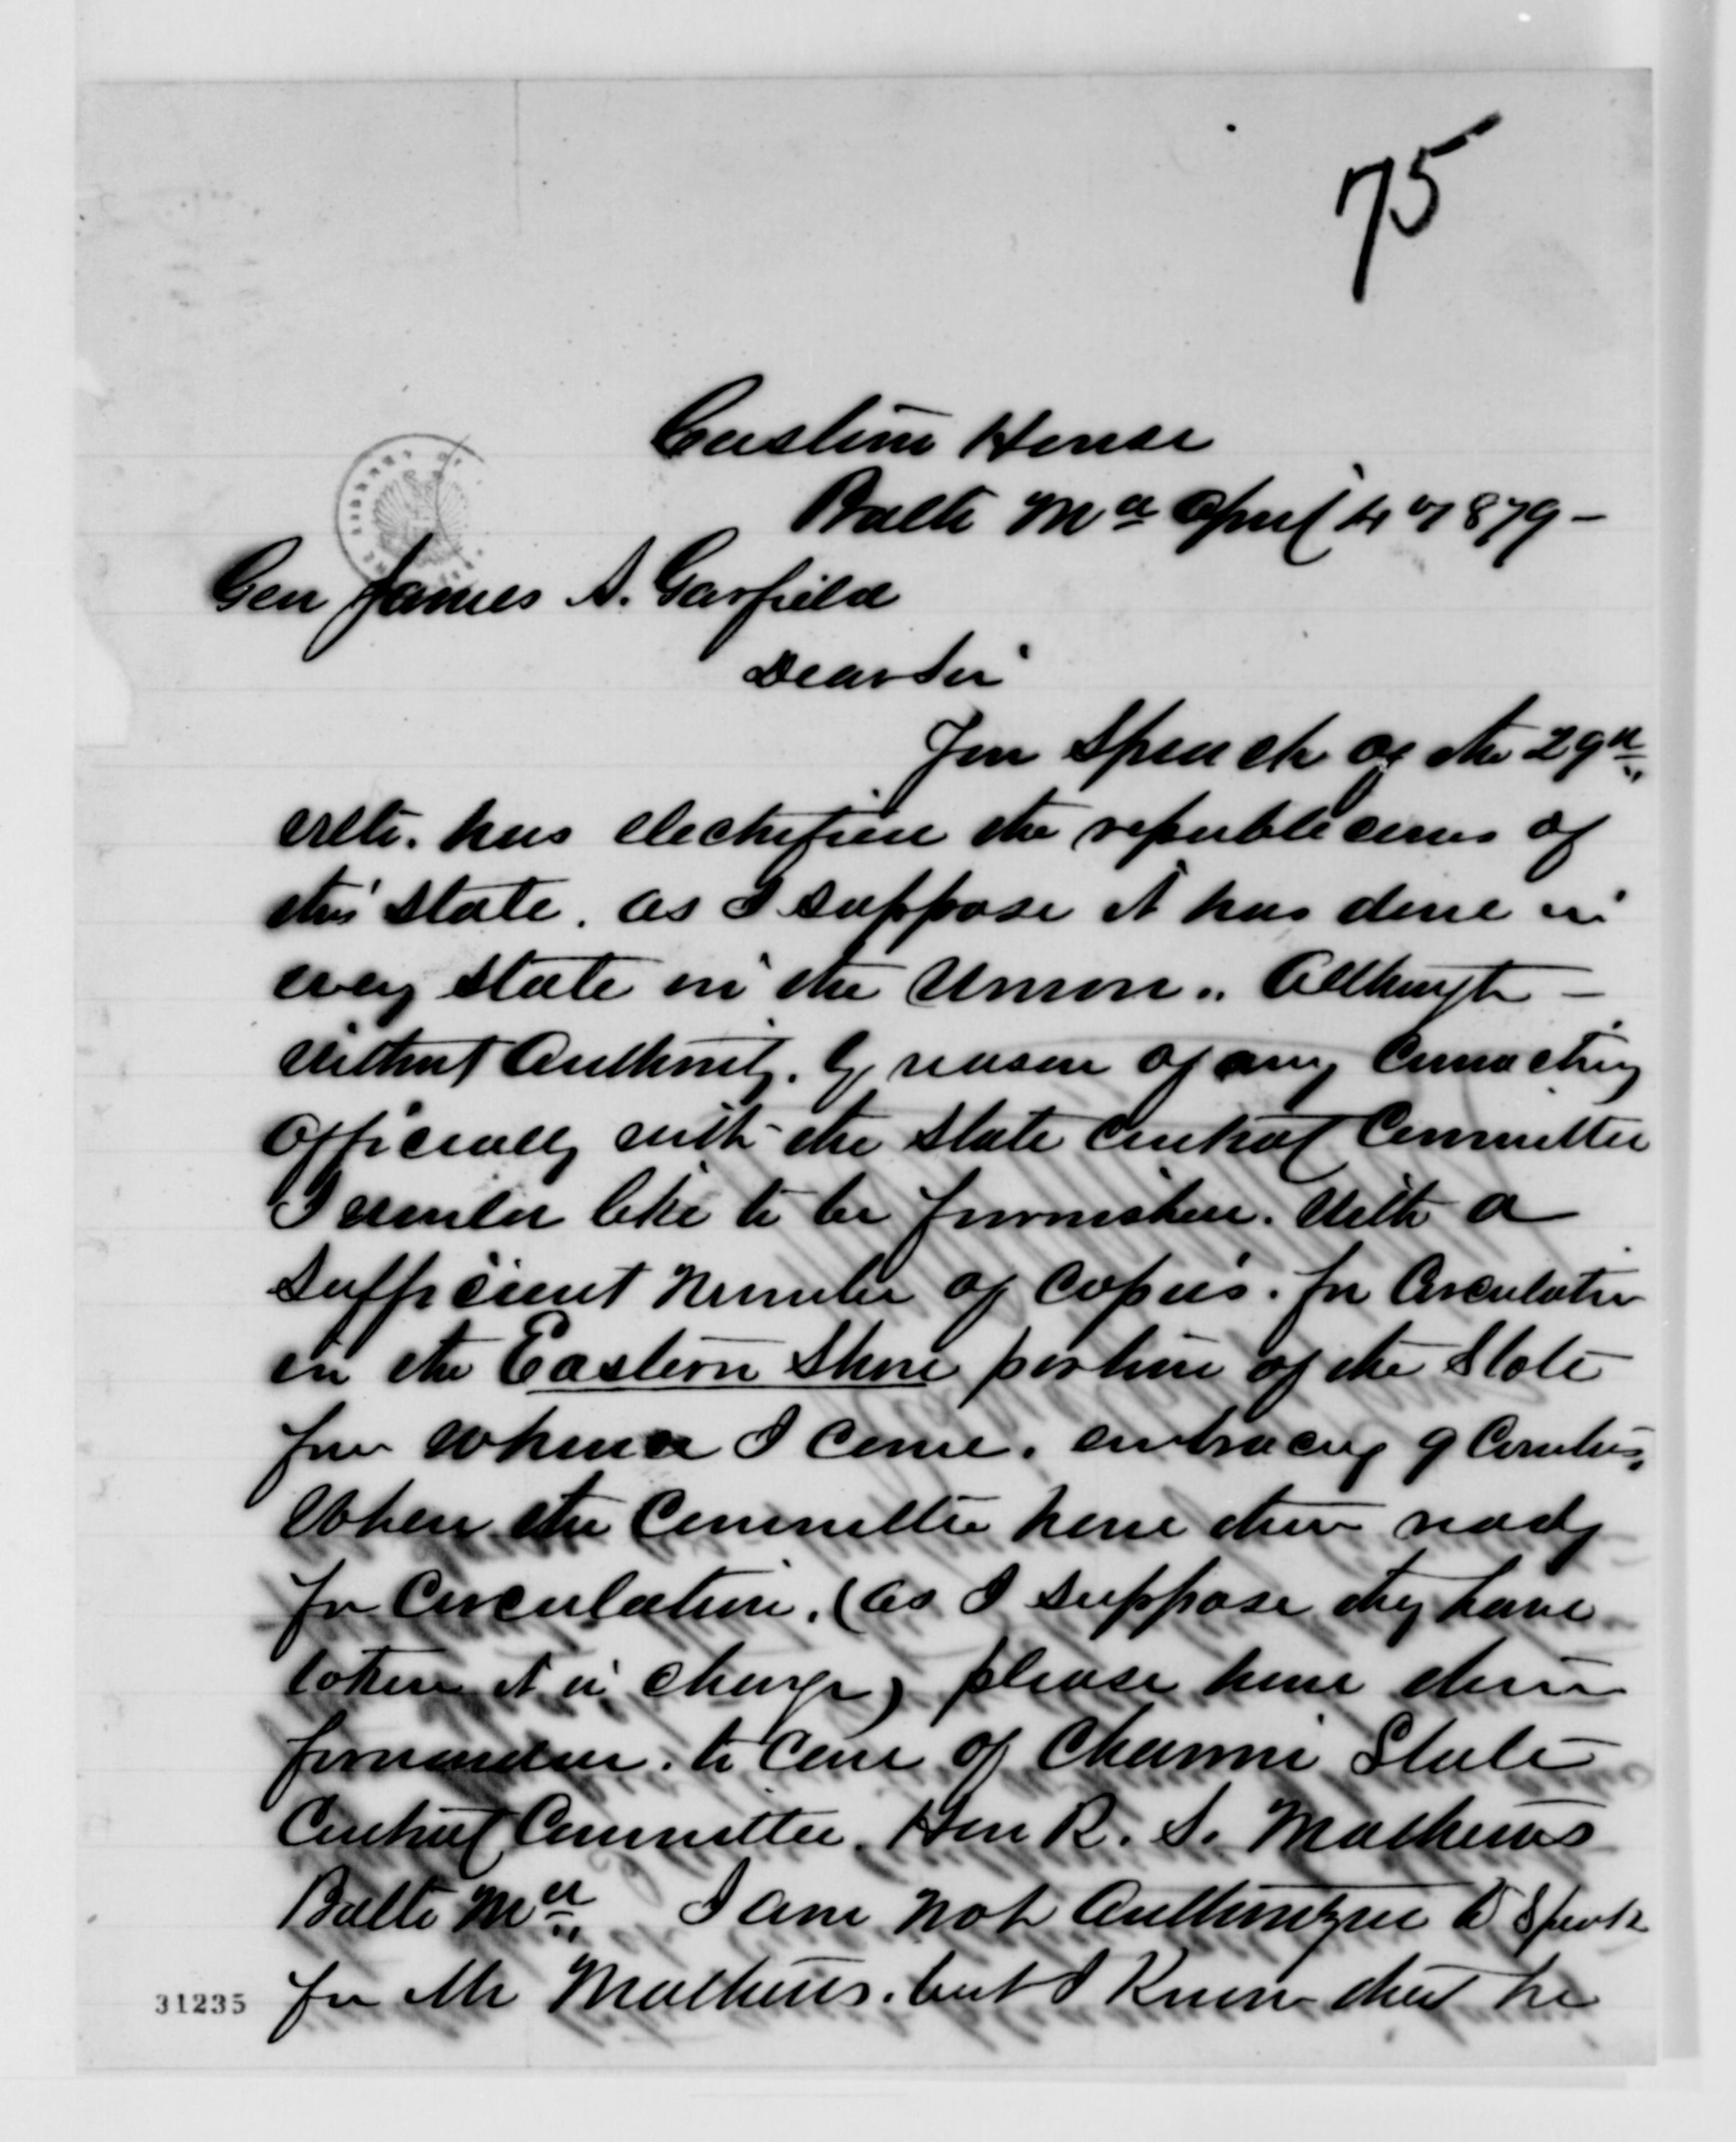 75
Custom House
Balto Md April 4th 1879 –
Gen James A. Garfield
Dear Sir
Your Speech of the 29th
ulto. has electrified the republicans of
this State. as I suppose it has done in
every State in the Union.. Although –
without Authority. by reason of any Connection
Officially with the State Central Committee
I would like to be furnished. With a
Sufficient Number of Copies. for Circulation
in the Eastern Shore portion of the State
from whence I come. embracing 9 Counties,
When the Committee have them ready
for Circulation. (as I suppose they have
taken it in charge) please have them
forwarded. to Care of Chairman State
Central Committee. Hon R. S. Mathews
Balto Md I am not Authorized to Speak
for Mr Mathews. but I Know that he
31235